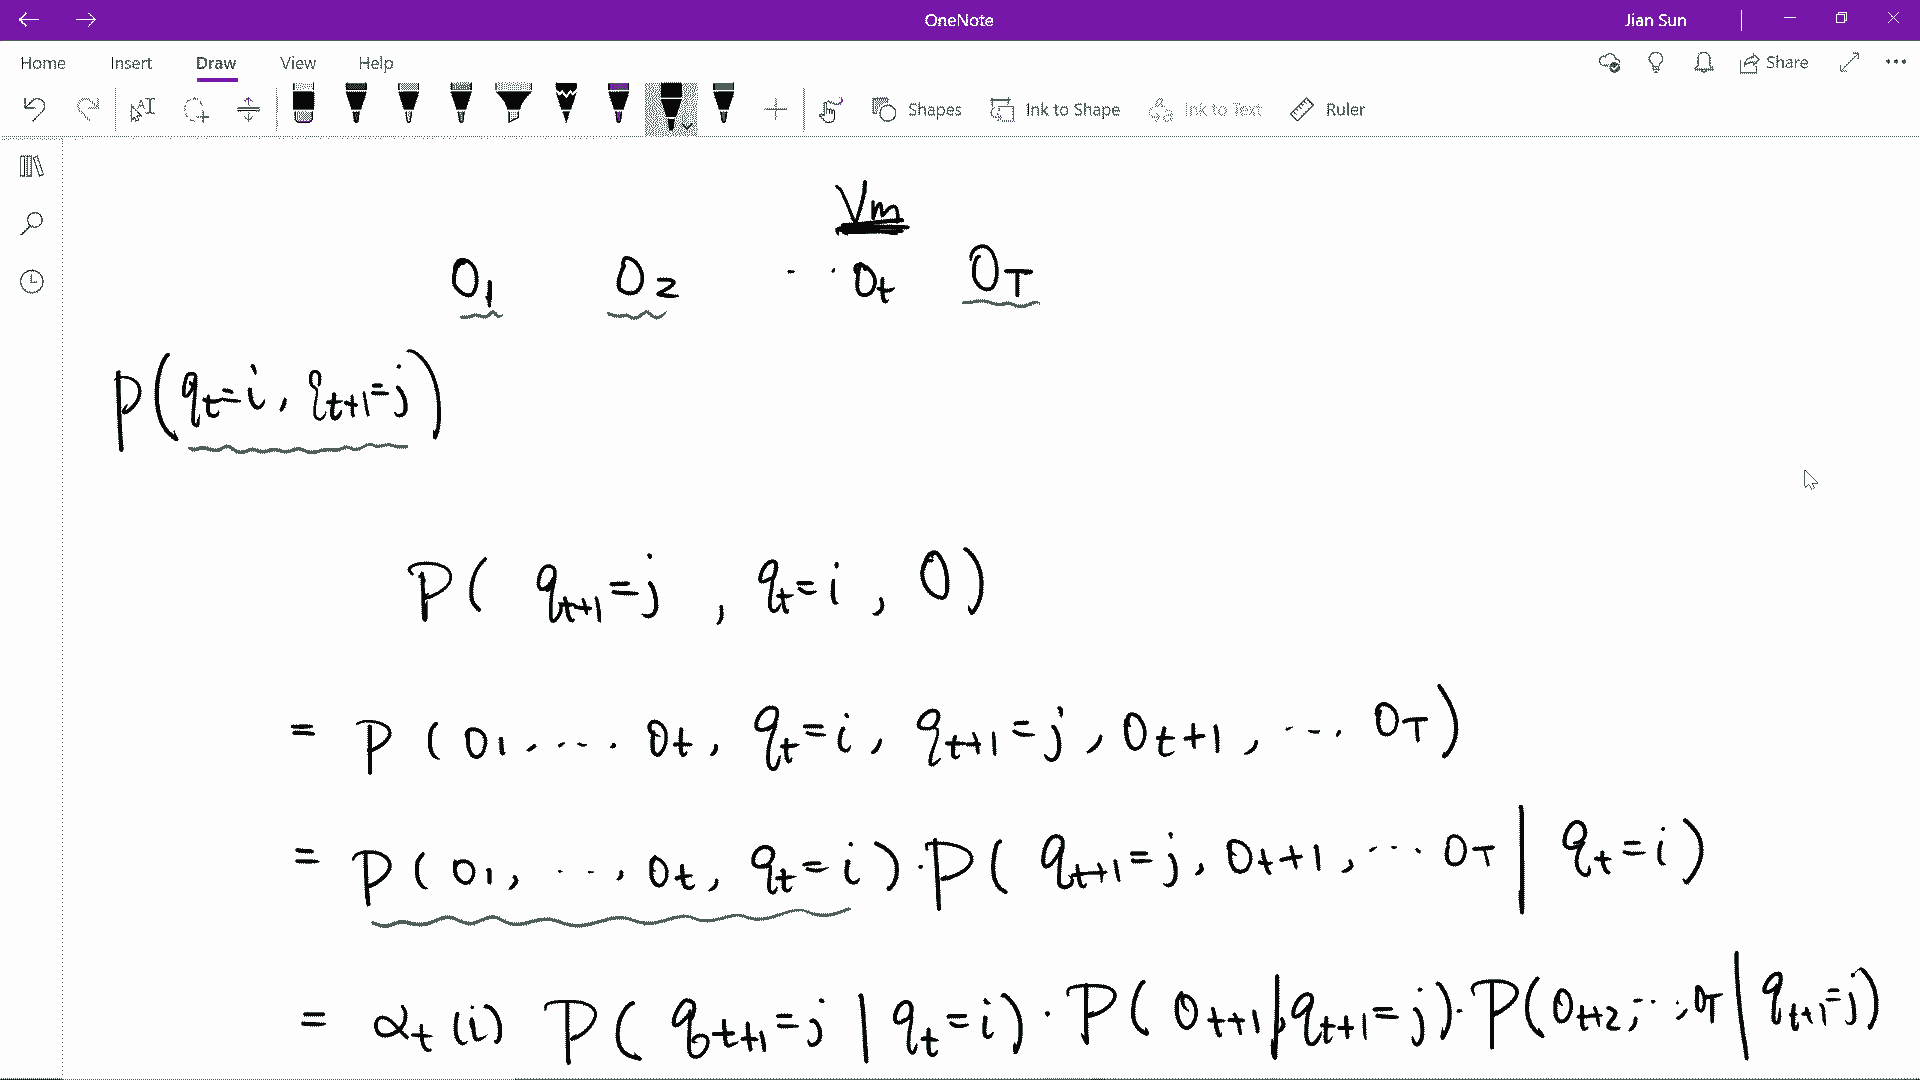 OneNote
Jian Sun
Home Insert Draw View Help
Share
Shapes Ink to Shape Ink to Text Ruler
Vm
O1 O2 ·· Ot OT
P(qt=i, qt+1=j)
P( qt+1=j , qt=i , O)
= P ( O1, ···· Ot, qt=i, qt+1=j, Ot+1, ··· OT)
= P ( O1, ···, Ot, qt=i)·P( qt+1=j, Ot+1, ··· OT | qt=i)
= αt (i) P( qt+1=j | qt=i)·P( Ot+1|qt+1=j)·P(Ot+2, ··, OT | qt+1=j)